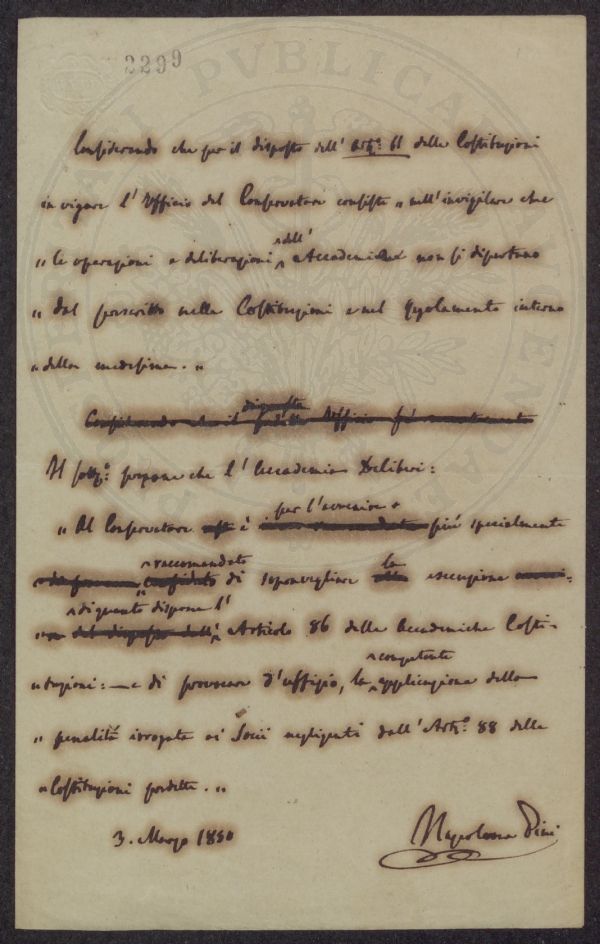 2299
Considerando che per il disposto dell' Art.º 61 delle Costituzioni
in vigore l'Officio del Conservatore consiste „ nell'invigilare che
„ le operazioni e deliberazioni dell' Accademia non si dipartano
„ dal prescritto nelle Costituzioni e nel Regolamento interno
„ della medesima. „
disposto
Considerando che il Officio
Il sott.º propone che l'Accademia Deliberi:
per l'avvenire
„ Al Conservatore è più specialmente
raccomandato la
di sopravvegliare esecuzione
di quanto dispone l'
„ Articolo 86 delle Accademiche Costi-
competente
„ tuzioni: — e di provocare d'uffizio, la applicazione della
„ penalità irrogata ai Socii negligenti dall'Art.º 88 delle
„ Costituzioni predette. „
3. Marzo 1850
Napoleone Pini